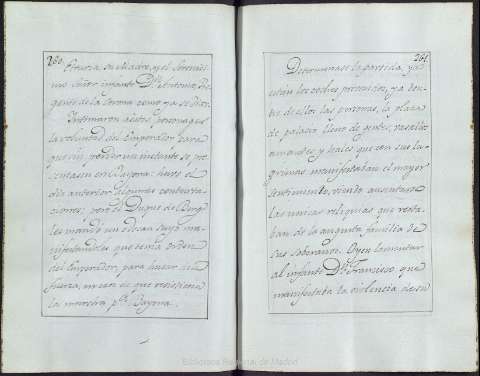 260.
Etruria, su Madre, y el Serenis-
mo Señor infante Dn. Antonio, Re-
gente de la Corona como ya se dixo.
Intimaron a estos personages
la voluntad del Emperador, para
que sin perder un instante se pre-
sentasen en Bayona: huvo el
dia anterior algunas contexta-
ciones; pero el Duque de Berg
les mandó un edecan suyo ma-
nifestandoles que tenia orden
del Emperador, para hacer
fuerza, en caso de que resistiesen
la marcha pa. Bayona.
261.
Determinase la partida, ya
estan los coches prevenidos, ya den-
tro de ellos las personas, la plaza
de palacio llena de gentes, vasallos
amantes y leales, que con sus la-
grimas manifestaban el mayor
sentimiento, viendo ausentarse
las unicas reliquias que resta-
ban de la augusta familia de
sus soberanos. Oyen lamentar
al infante Dn. Francisco que
manifestaba la violencia de su
Biblioteca Regional de Madrid